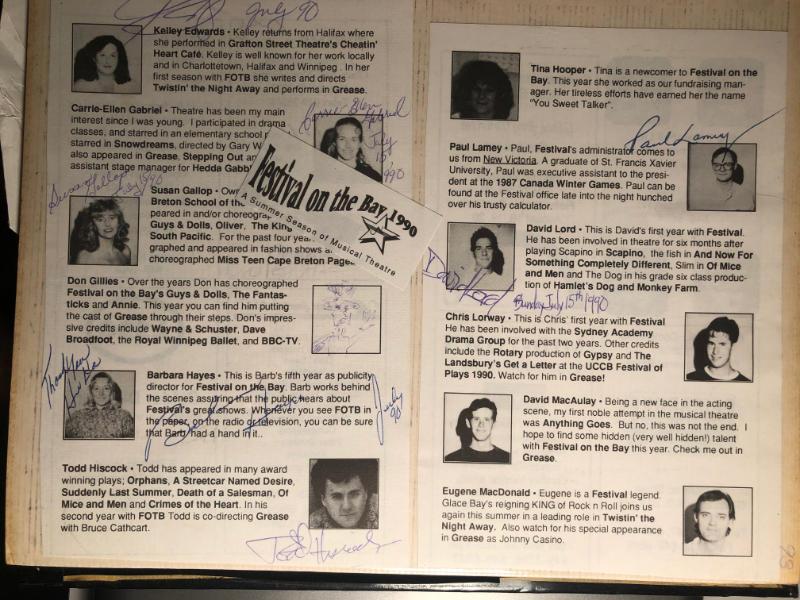 July 90
Kelley Edwards • Kelley returns from Halifax where
she performed in Grafton Street Theatre's Cheatin'
Heart Café. Kelley is well known for her work locally
and in Charlottetown, Halifax and Winnipeg. In her
first season with FOTB she writes and directs
Twistin' the Night Away and performs in Grease.
Carrie-Ellen Gabriel • Theatre has been my main
interest since I was young. I participated in drama
classes, and starred in an elementary school
starred in Snowdreams, directed by Gary W
also appeared in Grease, Stepping Out an
assistant stage manager for Hedda Gabb
Carrie-Ellen Gabriel
July
15
1990
Festival on the Bay 1990
A Summer Season of Musical Theatre
Susan Gallop
July 1990
Susan Gallop • Ow
Breton School of th
peared in and/or choreogra
Guys & Dolls, Oliver, The King
South Pacific. For the past four yea
graphed and appeared in fashion shows a
choreographed Miss Teen Cape Breton Page
Don Gillies • Over the years Don has choreographed
Festival on the Bay's Guys & Dolls, The Fantas-
ticks and Annie. This year you can find him putting
the cast of Grease through their steps. Don's impres-
sive credits include Wayne & Schuster, Dave
Broadfoot, the Royal Winnipeg Ballet, and BBC-TV.
Barbara Hayes • This is Barb's fifth year as publicity
director for Festival on the Bay. Barb works behind
the scenes assuring that the public hears about
Festival's great shows. Whenever you see FOTB in
the paper, on the radio or television, you can be sure
that Barb had a hand in it..
July
90
Todd Hiscock • Todd has appeared in many award
winning plays; Orphans, A Streetcar Named Desire,
Suddenly Last Summer, Death of a Salesman, Of
Mice and Men and Crimes of the Heart. In his
second year with FOTB Todd is co-directing Grease
with Bruce Cathcart.
Todd Hiscock
Tina Hooper • Tina is a newcomer to Festival on the
Bay. This year she worked as our fundraising man-
ager. Her tireless efforts have earned her the name
"You Sweet Talker".
Paul Lamey
Paul Lamey • Paul, Festival's administrator comes to
us from New Victoria. A graduate of St. Francis Xavier
University, Paul was executive assistant to the presi-
dent at the 1987 Canada Winter Games. Paul can be
found at the Festival office late into the night hunched
over his trusty calculator.
David Lord • This is David's first year with Festival.
He has been involved in theatre for six months after
playing Scapino in Scapino, the fish in And Now For
Something Completely Different, Slim in Of Mice
and Men and The Dog in his grade six class produc-
tion of Hamlet's Dog and Monkey Farm.
David Lord Sunday July 15th 1990
Chris Lorway • This is Chris' first year with Festival
He has been involved with the Sydney Academy
Drama Group for the past two years. Other credits
include the Rotary production of Gypsy and The
Landsbury's Get a Letter at the UCCB Festival of
Plays 1990. Watch for him in Grease!
David MacAulay • Being a new face in the acting
scene, my first noble attempt in the musical theatre
was Anything Goes. But no, this was not the end. I
hope to find some hidden (very well hidden!) talent
with Festival on the Bay this year. Check me out in
Grease.
Eugene MacDonald • Eugene is a Festival legend.
Glace Bay's reigning KING of Rock n Roll joins us
again this summer in a leading role in Twistin' the
Night Away. Also watch for his special appearance
in Grease as Johnny Casino.